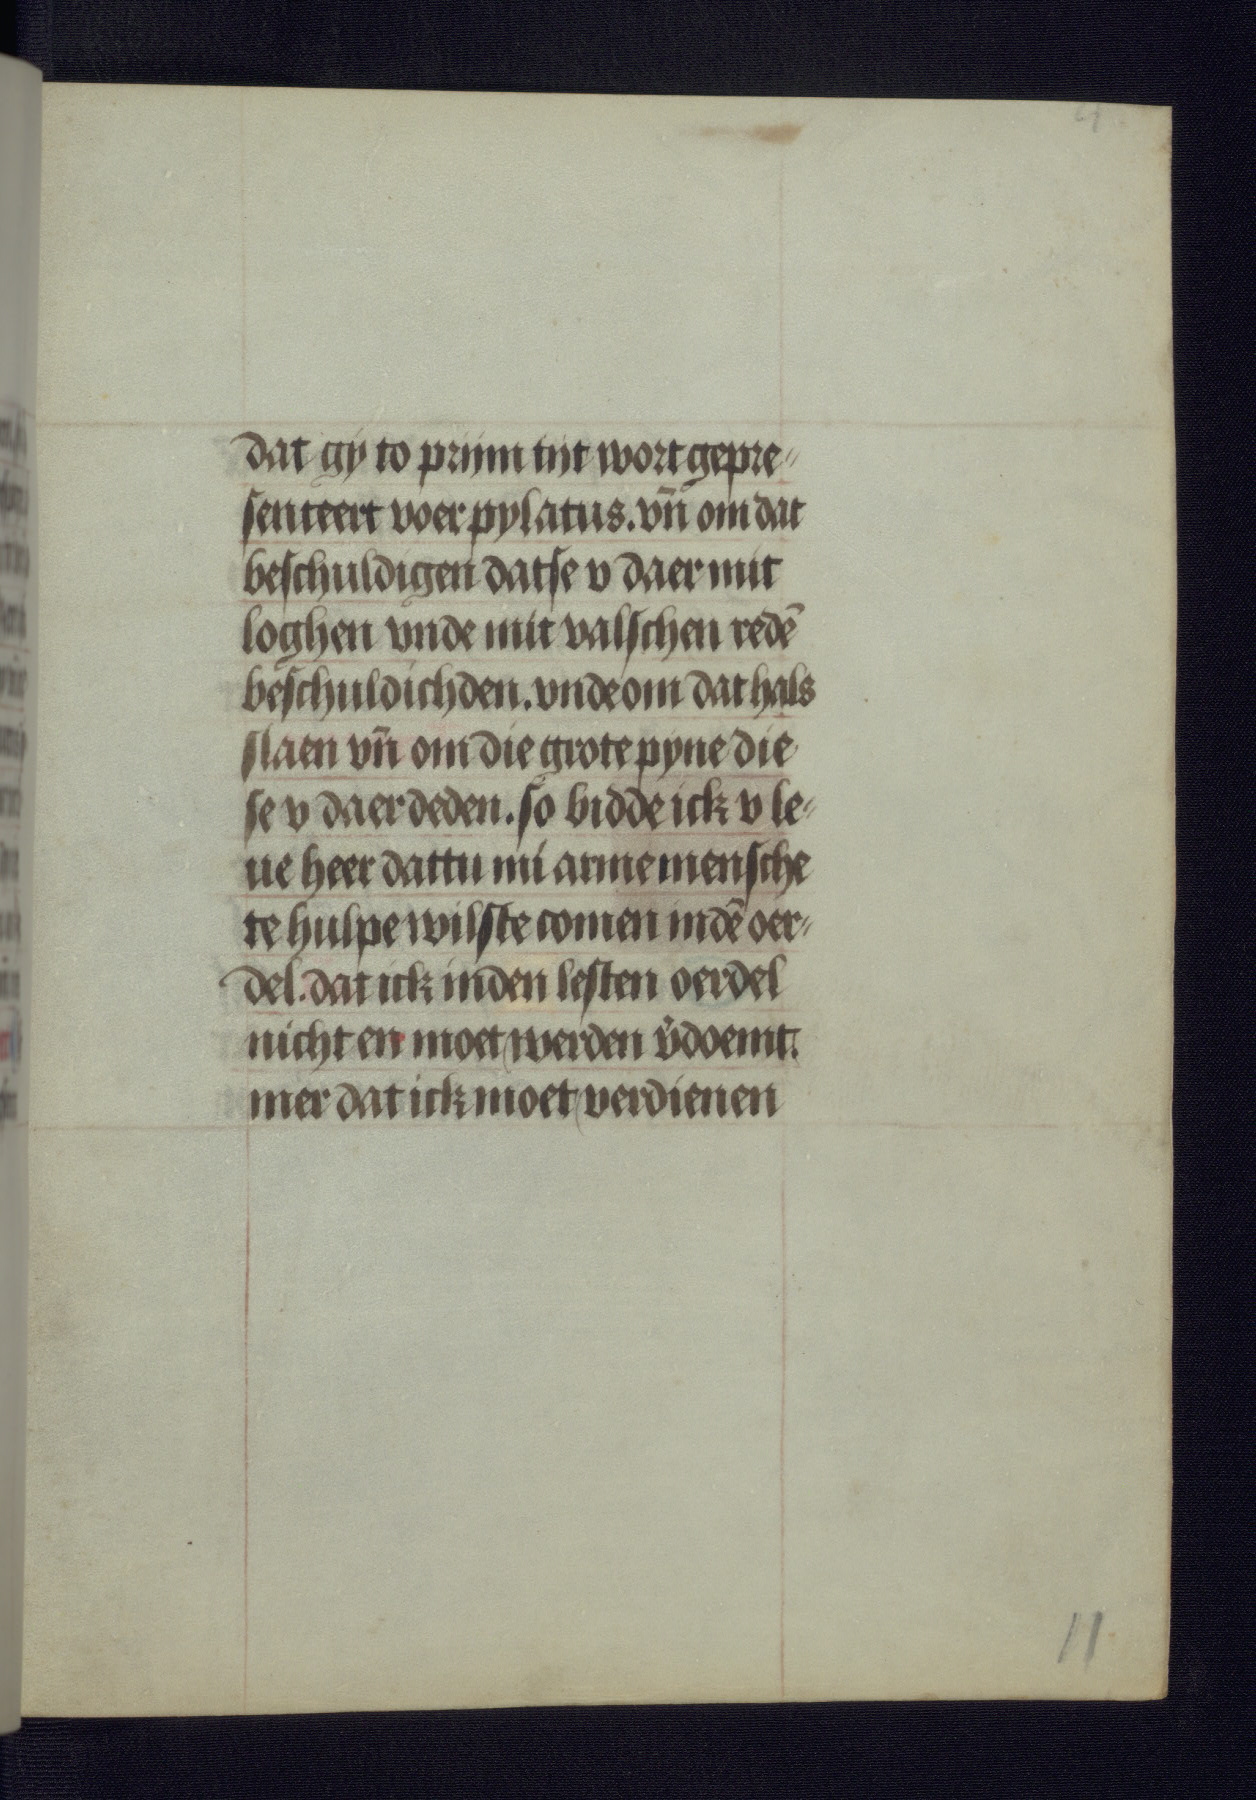 dat gy to prijm tyt wort gepre-
senteert voer pylatus. vn̄ om dat
beschuldigen datse v daer mit
loghen vnde mit valschen redē
beschuldichden. vnde om dat hals
slaen vn̄ om die grote pyne die
se v daer deden. so bidde ick v le-
ue heer dattu mi arme mensche
te hulpe wilste comen indē oer-
del. dat ick inden lesten oerdel
nicht en moet werden v̄doemt.
mer dat ick moet verdienen
11